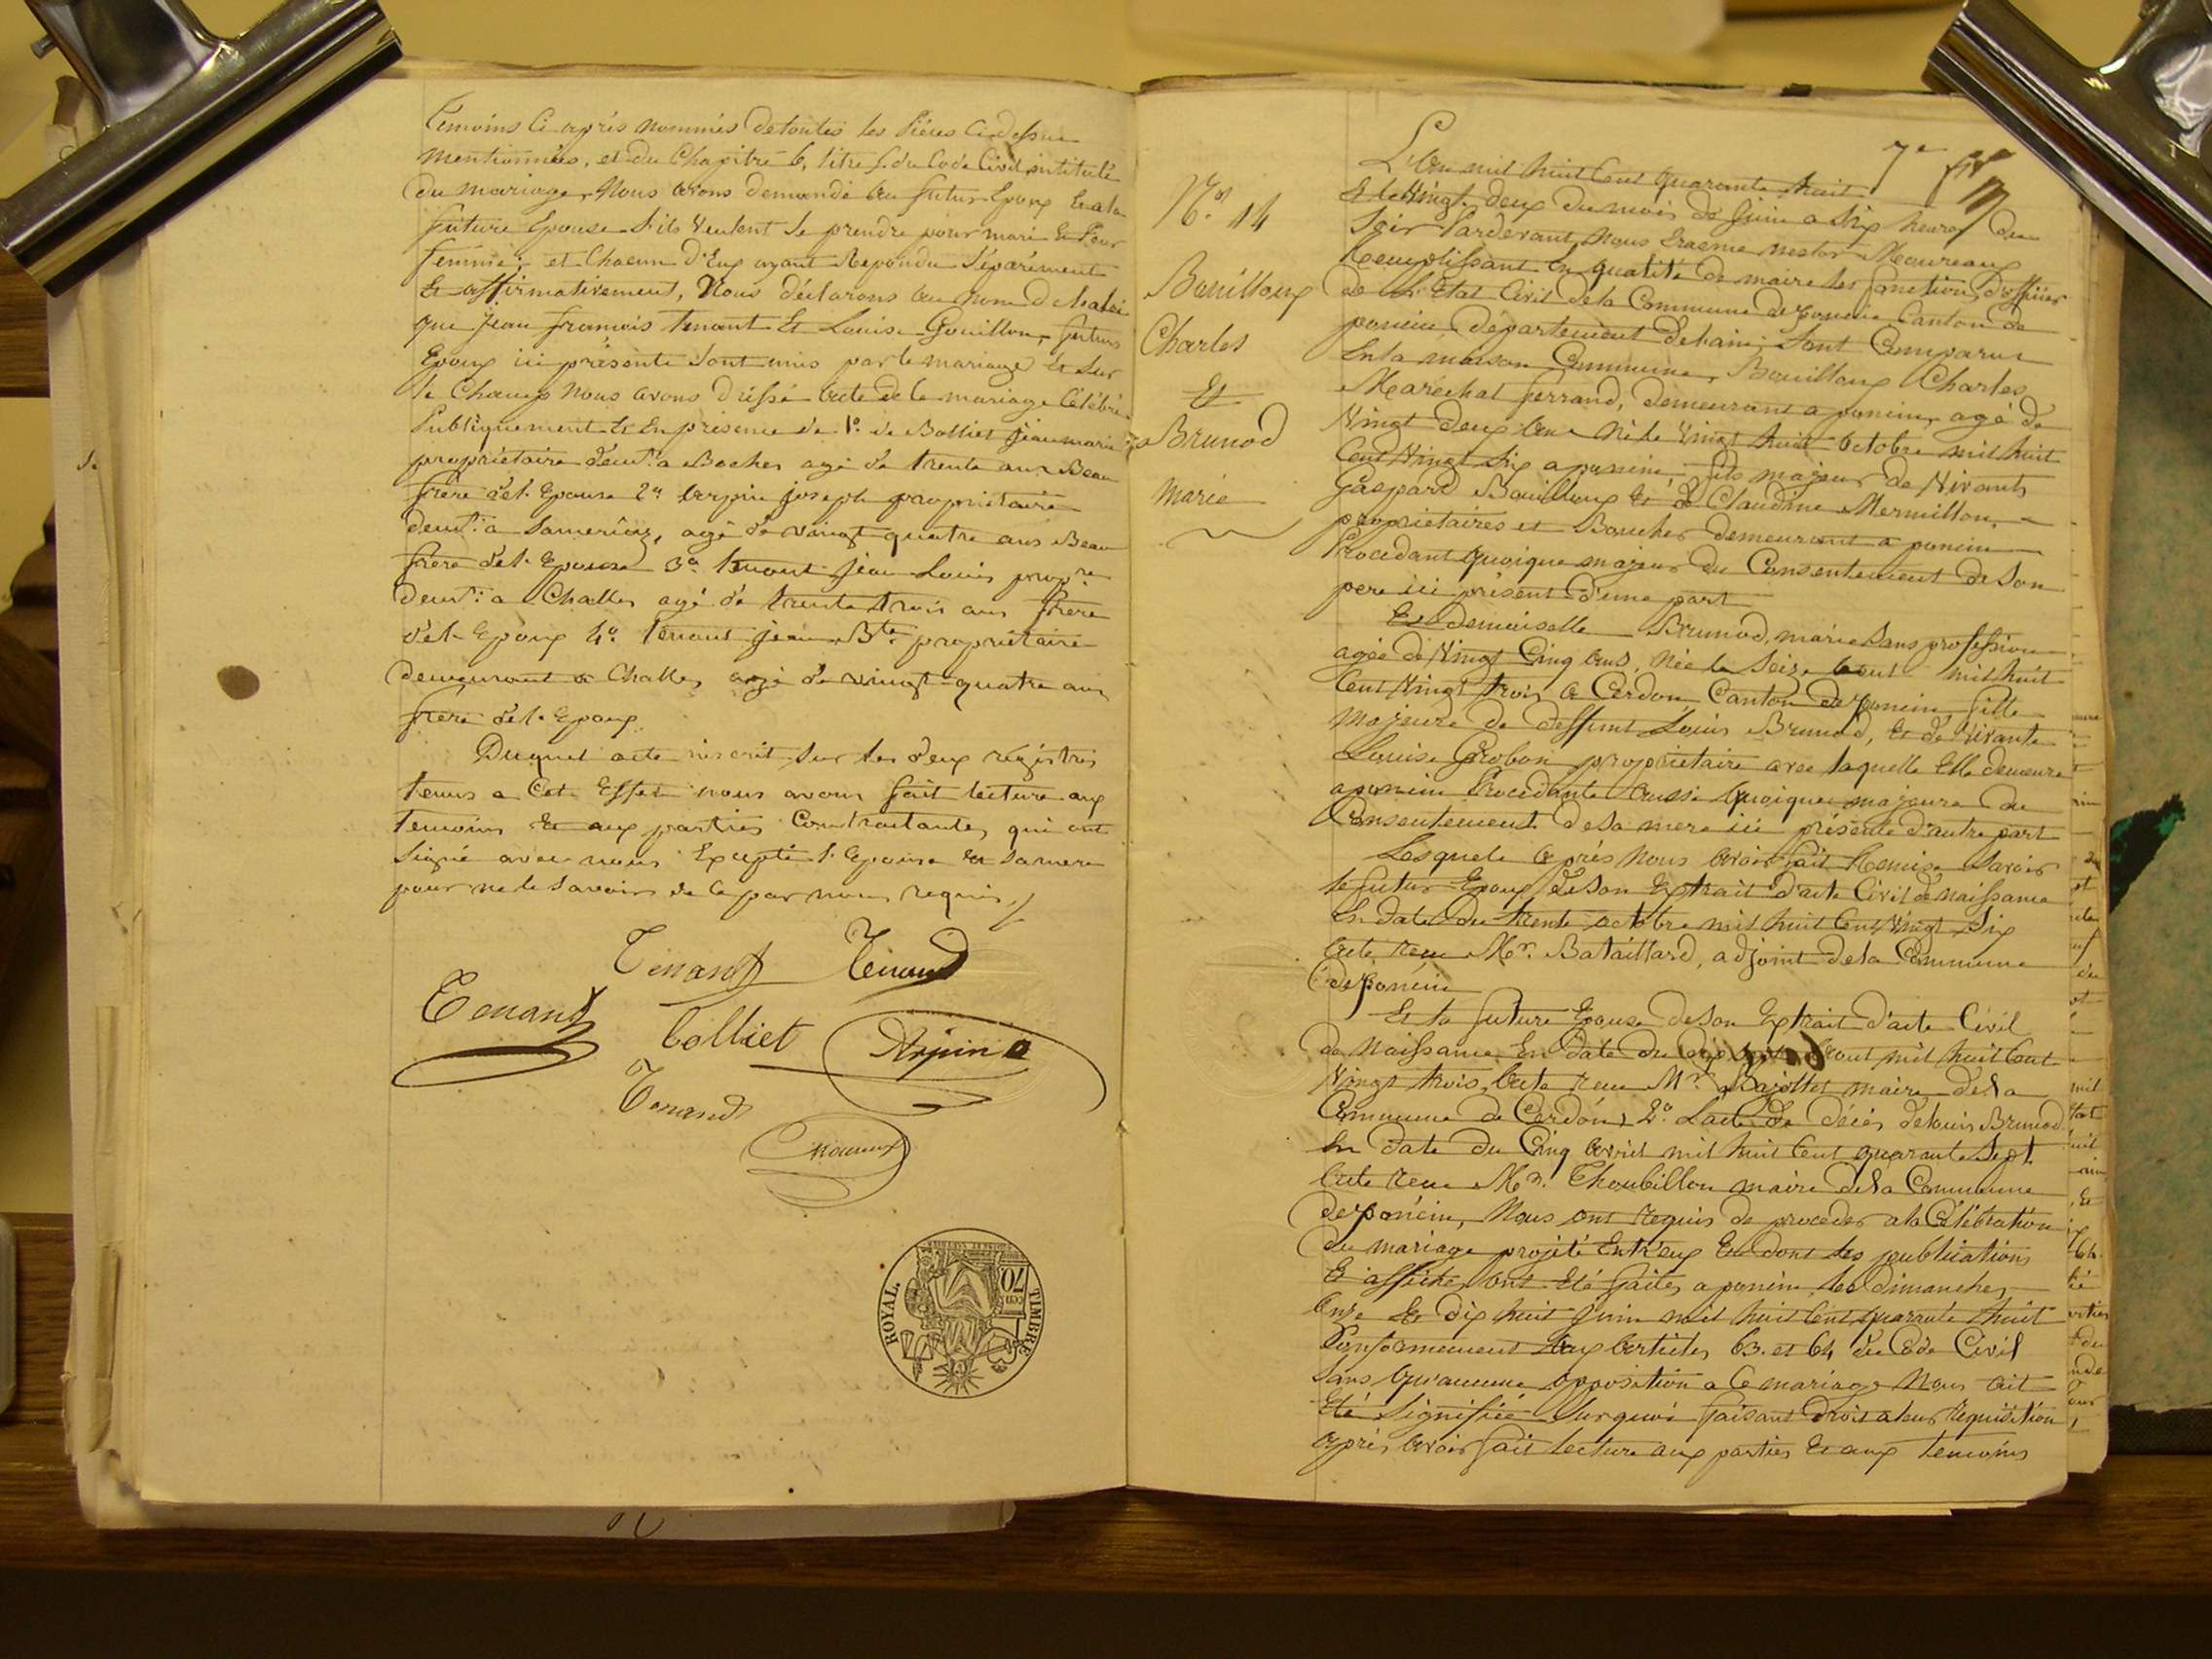 Temoins Ci-après nommés de toutes les Pièces Ci-dessus
mentionnées, et du Chapitre 6, titre 5. du Code Civil, intitulé
du mariage, Nous avons demandé au futur Epoux Et a la
future Epouse s'ils veulent se prendre pour mari Et Pour
femme; et Chacun d'Eux ayant Repondu Séparément
Et affirmativement, Nous déclarons au nom De la loi
que Jean françois tenant Et Louise Gouillon, futurs
Epoux ici présents sont unis par le mariage Et Sur
le Champ Nous avons Dressé acte de le mariage Célébré
Publiquement Et En présence de 1º. de Bolliet jean marie
propriétaire demt. a Boches agé de trente ans Beau
frère de l. Epouse 2º arpin joseph propriétaire
demt. a Samerias, agé de vingt-quatre ans Beau
frère de l. Epouse 3º tenant jean Louis propre
demt. a Challes agé de trente trois ans frere
de l. Epoux 4º. tenant jean Bte. propriétaire
demeurant a Challes agé de vingt-quatre ans
frère de l. Epoux
Duquel acte inscrit sur les deux régistres
tenus a Cet Effet nous avons fait lecture aux
temoins Et aux parties Contractantes, qui ont
signé avec nous Excepté l. Epouse Et sa mere
pour ne le savoir de ce par nous requis
Tenant Tenand
Tenant
Bolliet Arpin
Tenand
Maureaux
ROYAL. TIMBRE
70 cen
7e
No. 14
Bouilloux
Charles
Et
Brunod
marie
L'an mil huit Cent quarante huit
Et le Vingt-deux du mois de juin a Six heures du
Soir Pardevant Nous Erasme nestor Maureaux
Remplissant En qualité de maire les fonctions d'officier
de L'Etat Civil de la Commune de poncin Canton de
poncin département de l'ain; Sont Comparus
En la maison Commune, Bouilloux Charles
Maréchal ferrand, demeurant a poncin, agé de
Vingt Deux ans né le Vingt huit octobre mil huit
Cent Vingt Six a poncin, fils majeur de Vivants
Gaspard Bouilloux Et de Claudine Mermillon,
propriétaires et Boucher demeurant a poncin
Procedant quoique majeur du Consentement de Son
pere ici présent d'une part
Et demoiselle Brunod, marie sans profession
agée de Vingt Cinq ans, née le Seize aout mil huit
Cent Vingt trois a Cerdon, Canton de poncin, fille
Majeure de deffunt Louis Brunod, Et de vivante
Louise Grobon propriétaire avec laquelle Elle demeure
a poncin Procedante aussi quoique majeure du
Consentement de sa mere ici présente d'autre part
Lesquels après Nous avoir fait Remise Savoir
le futur Epoux de son Extrait d'acte Civil de naissance
En date du trente octobre mil huit Cent Vingt Six
acte reçu Mr. Bataillard, adjoint de la Commune
de poncin
Et la future Epouse de son Extrait d'acte Civil
de Naissance En date du aout mil huit Cent
Vingt trois, acte reçu Mr. Bajollet maire de la
Commune de Cerdon, 2º. L'acte de décès de louis Brunod
En date du Cinq avril mil huit Cent quarante Sept
acte reçu Mr. Thoubillon maire de la Commune
de poncin, Nous ont requis de procéder a la Célébration
du mariage projeté Entr'eux Et dont les publications
Et affiches ont été faites a poncin les dimanches
onze Et Dix huit juin mil huit Cent quarante huit
Conformement aux articles 63. et 64 du Code Civil
Sans qu'aucune opposition a Ce mariage Nous ait
Eté Signifiée Sur quoi faisant Droit a leur requisition
après avoir fait lecture aux parties Et aux temoins